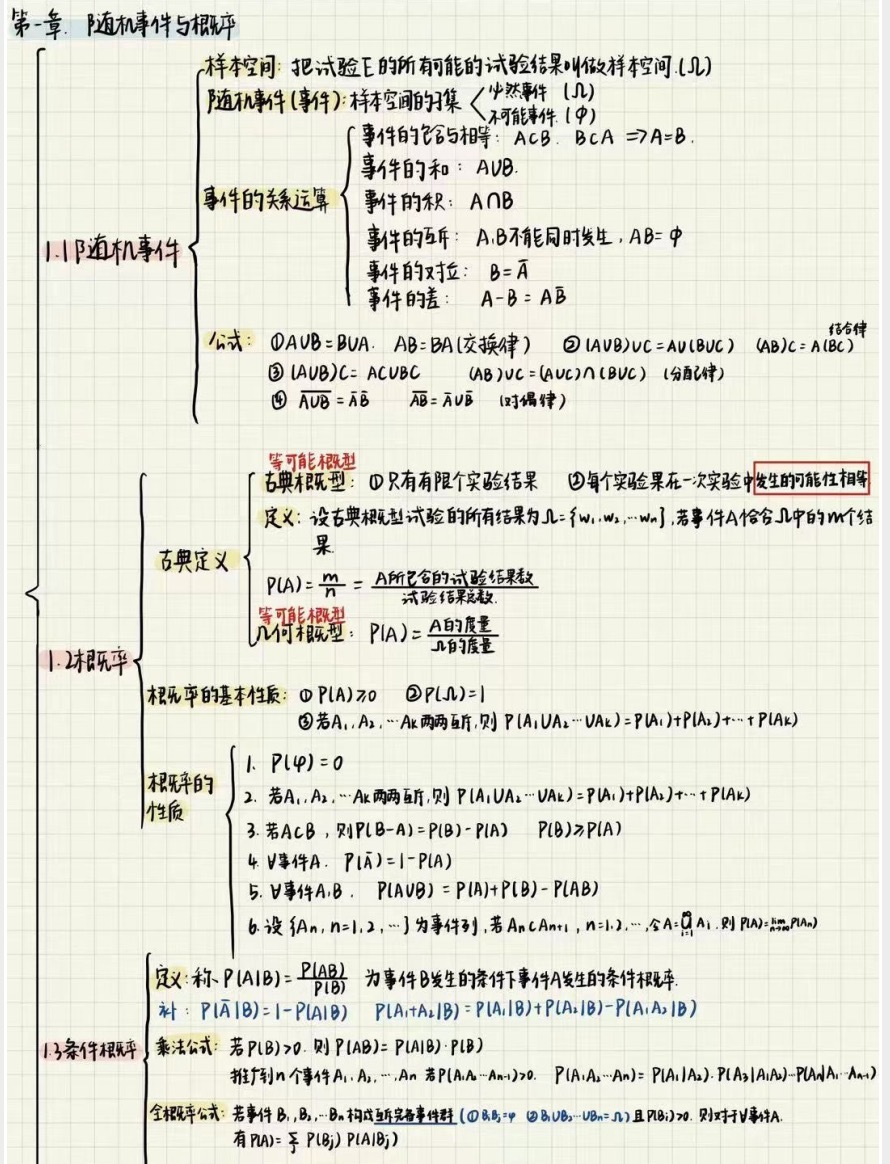 第一章. 随机事件与概率
1.1随机事件
样本空间: 把试验E的所有可能的试验结果叫做样本空间.(Ω)
随机事件(事件): 样本空间的子集 必然事件 (Ω)
不可能事件.(φ)
事件的关系运算
事件的包含与相等: A⊂B. B⊂A ⇒A=B.
事件的和: A∪B.
事件的积: A∩B
事件的互斥: A,B不能同时发生, AB=φ
事件的对立: B=Ā
事件的差: A-B=AB̄
公式: ①A∪B=B∪A. AB=BA(交换律) ②(A∪B)∪C=A∪(B∪C) (AB)C=A(BC) 结合律
③(A∪B)C=AC∪BC (AB)∪C=(A∪C)∩(B∪C) (分配律)
④ \overline{A∪B}=ĀB̄ \overline{AB}=Ā∪B̄ (对偶律)
1.2概率
古典定义
等可能概型
古典概型: ①只有有限个实验结果 ②每个实验果在一次实验中发生的可能性相等
定义: 设古典概型试验的所有结果为Ω={w₁,w₂,…wₙ},若事件A恰含Ω中的m个结
果.
P(A)=m/n=A所包含的试验结果数/试验结果总数.
等可能概型
几何概型: P(A)=A的度量/Ω的度量
概率的基本性质: ①P(A)≥0 ②P(Ω)=1
③若A₁,A₂,…Aₖ两两互斥,则 P(A₁∪A₂…∪Aₖ)=P(A₁)+P(A₂)+…+P(Aₖ)
概率的
性质
1. P(φ)=0
2. 若A₁,A₂,…Aₖ两两互斥,则 P(A₁∪A₂…∪Aₖ)=P(A₁)+P(A₂)+…+P(Aₖ)
3. 若A⊂B,则P(B-A)=P(B)-P(A) P(B)≥P(A)
4. ∀事件A. P(Ā)=1-P(A)
5. ∀事件A,B. P(A∪B)=P(A)+P(B)-P(AB)
6. 设{Aₙ,n=1,2,…}为事件列,若Aₙ⊂Aₙ₊₁,n=1,2,…,令A=⋃_{i=1}^{∞}Aᵢ.则P(A)=lim_{n→∞}P(Aₙ)
1.3条件概率
定义: 称P(A|B)=P(AB)/P(B) 为事件B发生的条件下事件A发生的条件概率.
补: P(Ā|B)=1-P(A|B) P(A₁+A₂|B)=P(A₁|B)+P(A₂|B)-P(A₁A₂|B)
乘法公式: 若P(B)>0.则P(AB)=P(A|B)·P(B)
推广到n个事件A₁,A₂,…,Aₙ 若P(A₁A₂…Aₙ₋₁)>0. P(A₁A₂…Aₙ)=P(A₁|A₂)·P(A₃|A₁A₂)…P(Aₙ|A₁…Aₙ₋₁)
全概率公式: 若事件B₁,B₂,…Bₙ构成互斥完备事件群(①BᵢBⱼ=φ ②B₁∪B₂…∪Bₙ=Ω)且P(Bᵢ)>0.则对于∀事件A.
有P(A)=∑ⱼ P(Bⱼ)P(A|Bⱼ)